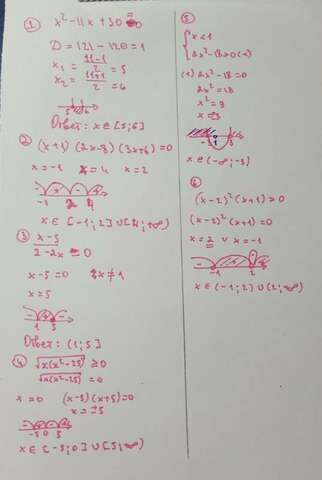 ①
x² - 11x + 30 = 0
D = 121 - 120 = 1
x₁ = (11-1)/2 = 5
x₂ = (11+1)/2 = 6
5 6
Ответ: x ∈ [5;6]
②
(x+1) (2x-8) (3x+6) = 0
x = -1 x = 4 x = 2
+ - +
-1 2 4
x ∈ [-1; 2] ∪ [4; +∞)
③
(x-5)/(2-2x) = 0
x - 5 = 0 x ≠ 1
x = 5
- + -
1 5
Ответ: (1; 5]
④
√x(x²-25) ≥ 0
√x(x²-25) = 0
x = 0 (x-5)(x+5) = 0
x = ±5
-5 0 5
x ∈ [-5; 0] ∪ [5; ∞)
⑤
{ x < 1
2x² - 18 > 0 (1)
(1) 2x² - 18 = 0
2x² = 18
x² = 9
x = ±3
-3 1 3
x ∈ (-∞; -3)
⑥
(x-2)² (x+1) > 0
(x-2)² (x+1) = 0
x = 2 ∨ x = -1
-1 2
x ∈ (-1; 2) ∪ (2; ∞)